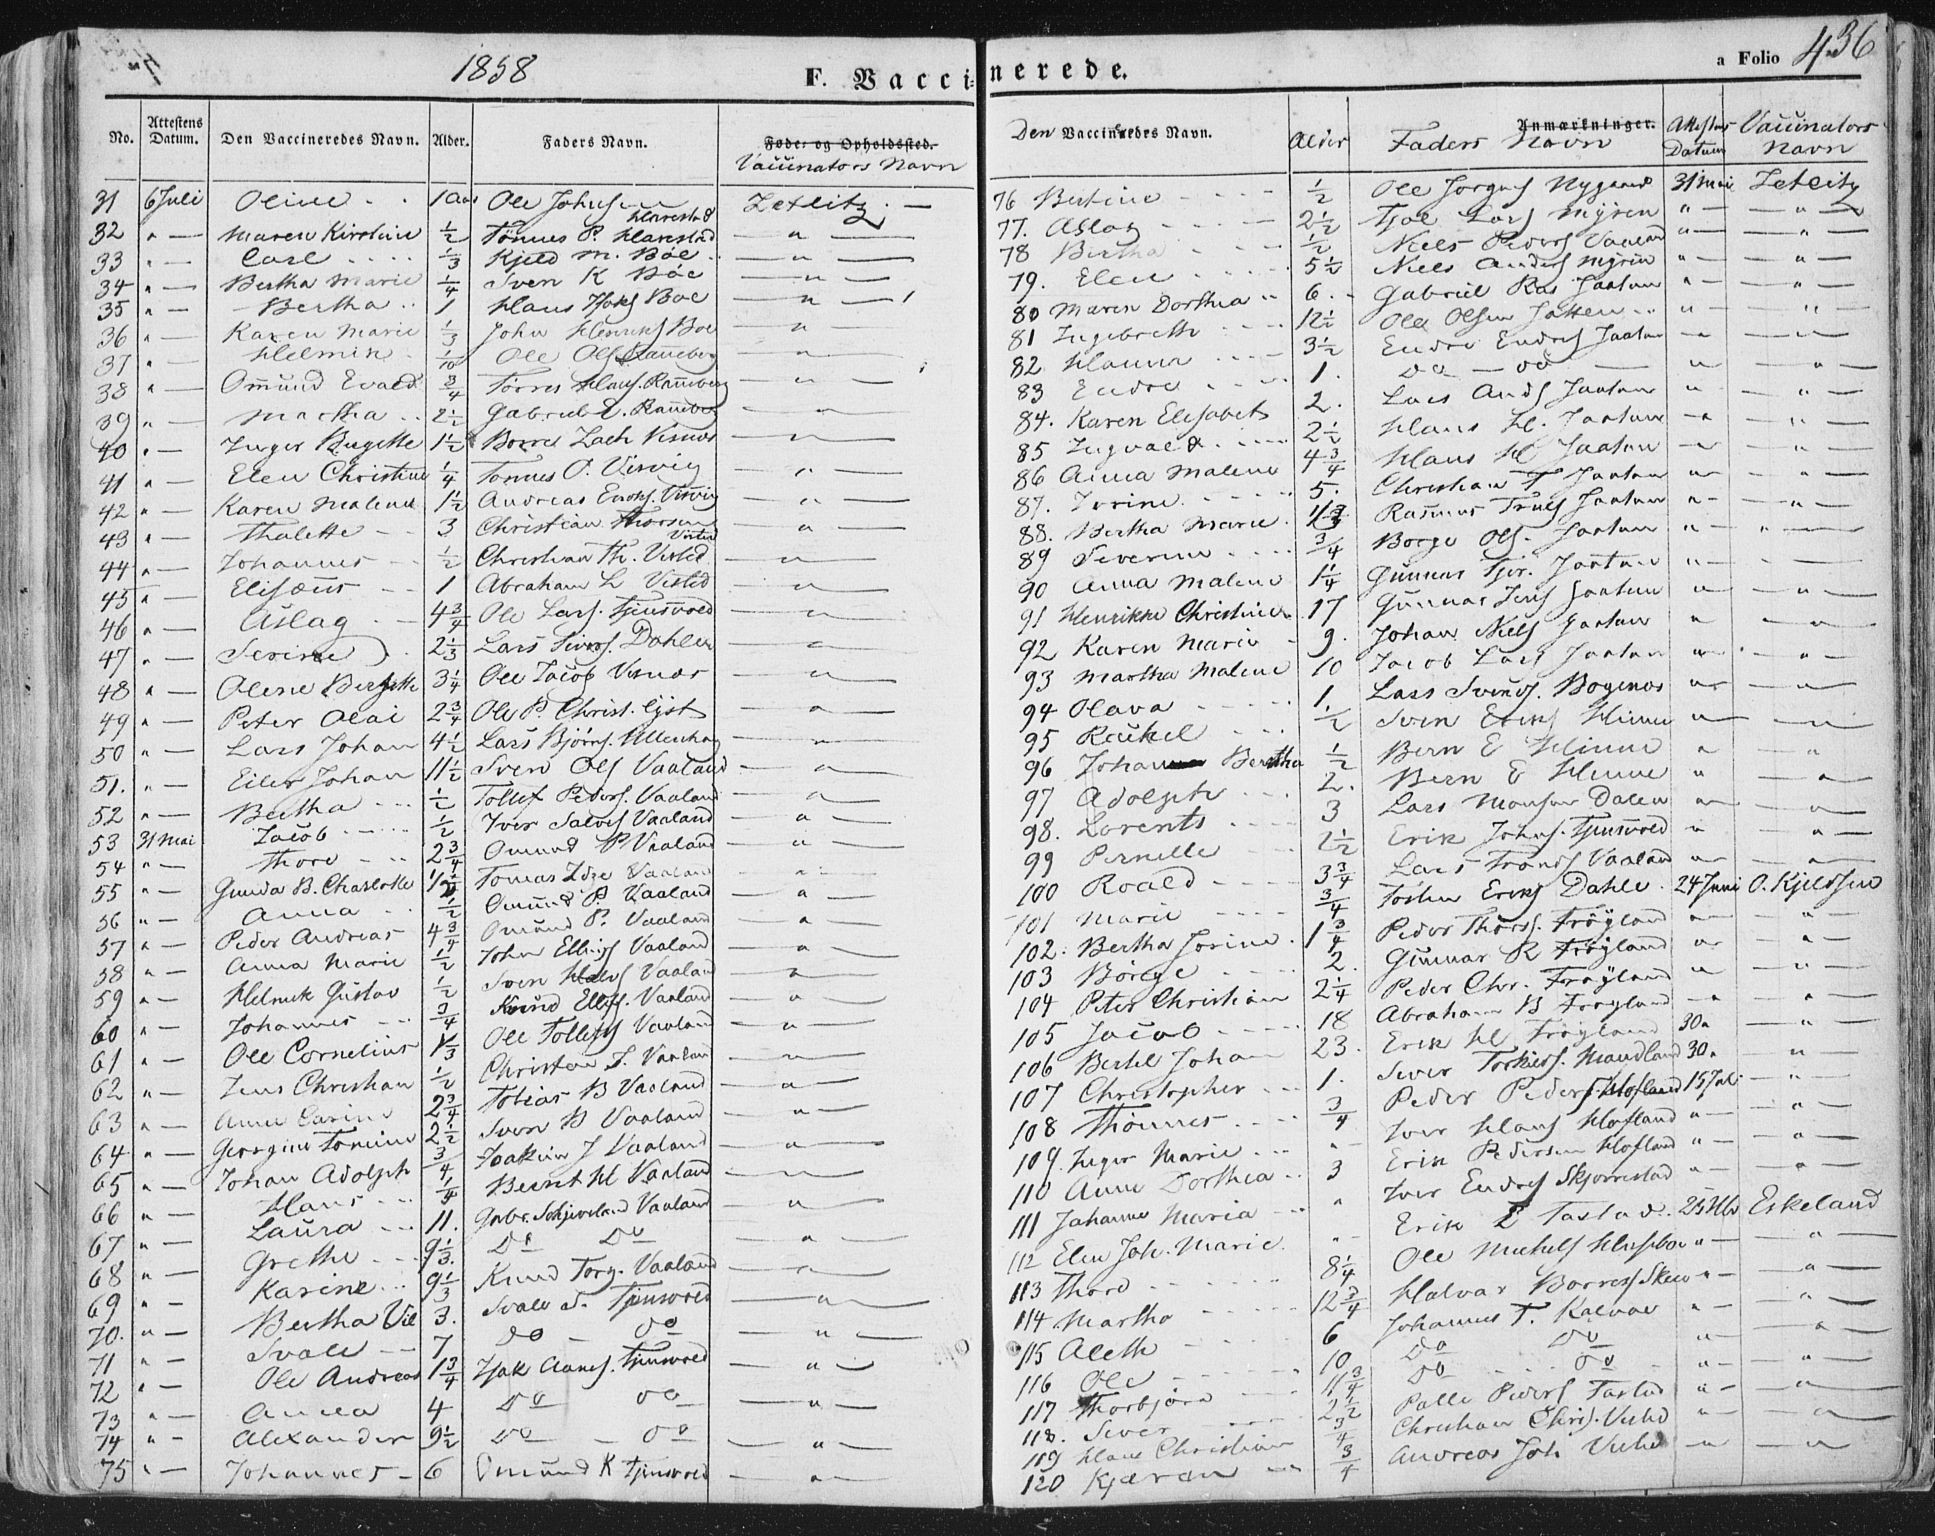 1858
F. Vacci-
No. Attestens Datum. Den Vaccineredes Navn. Alder. Faders Navn. Føde- og Opholdssted. Vaccinators Navn
31 6 Juli Oline 1 Aar Ole Johnsen Harestad Zetlitz
32 " Maren Kirstine 1/2 Tønnes P. Harestad "
33 " Carl 1/3 Kjeld M. Bøe "
34 " Bertha Marie 1/4 Sven K Bøe "
35 " Bertha 1 Hans Boe "
36 " Karen Marie 1/3 John Boe "
37 " Helmik 1/10 Ole Ols Ranneberg "
38 " Omund Evald 3/4 Tørres Hans. Ranneberg "
39 " Martha 2 1/2 Gabriel Ranneberg "
40 " Inger Birgitte 1 1/2 Borre Zach Visnæs "
41 " Elen Christine 1/4 Tonnes O. Visvig "
42 " Karen Malene 1 1/2 Andreas Enoks. Viisvig "
43 " Thalette 3 Christian Thorsen Visted "
44 " Johannes 1/2 Christian Th. Visted "
45 " Elisæus 1 Abraham L Visted "
46 " Aslag 4 3/4 Ole Lars. Tjensvold "
47 " Serine 2 1/3 Lars Sivers. Dahlen "
48 " Olene Bergitte 3 1/4 Ole Jacob Visnæs "
49 " Peter Olai 2 3/4 Ole P. Christ. "
50 " Lars Johan 4 1/2 Lars Bjørns. Ullenhag "
51. " Eiler Johan 11 1/2 Sven Ols Vaaland "
52 " Bertha 1/2 Tollef Peders. Vaaland "
53 31 Mai Jacob 1/2 Iver Salves Vaaland "
54 " Thore 2 3/4 Omund P Vaaland "
55 " Gunda B. Charlotte Tomas Vaaland "
56 " Anna 1/2 Omund P. Vaaland "
57 " Peder Andreas 4 3/4 Omund P. Vaaland "
58 " Anna Marie 1/2 John Ellings Vaaland "
59 " Helmik Gustav 1/2 Sven Vaaland "
60 " Johannes 3/4 Knud Vaaland "
61 " Ole Cornelius 1/3 Ole Tollefs Vaaland "
62 " Jens Christian 1/2 Christen S. Vaaland "
63 " Ane Carine 2 3/4 Tobias B Vaaland "
64 " Georgine Tomine 2 1/2 Sven B Vaaland "
65 " Johan Adolph 3/4 Joakim J Vaaland "
66 " Hans 1/4 Bernt H Vaaland "
67 " Laura 11. Gabr. Skjeveland Vaaland "
68 " Grethe 9 1/3 Do Do "
69 " Karine 9 1/3 Knud Torg. Vaaland "
70. " Bertha Vil 3. Svale S. Tjensvold "
71 " Svale 7 Do Do "
72 " Ole Andreas 1 3/4 Isak Tjensvold "
73 " Anna 4 Do Do "
74 " Alexander 9 1/2 Do Do "
75 " Johannes 6 Omund K Tjensvold "
nerede.
a Folio 436
Den Vaccineredes Navn. Alder Anmærkninger. Faders Navn Attestens Datum Vaccinators Navn
76 Bertine 1/2 Ole Jørgens Nygaard 31 Mai Zetlitz
77. Aslag 2 1/2 Tjøl Lars Myren " "
78 Bertha 1/2 Niels Peders Vaaland " "
79. Elen 5 1/2 Niels Anders Myren " "
80 Maren Dorthea 6. Gabriel Ras Jaatun " "
81 Ingebreth 12 1/2 Ole Olsen Jatten " "
82 Hanna 3 1/2 Endre Endres Jaatun " "
83 Endre 1. Do do " "
84. Karen Elisabet 2. Lars Ands Jaatun " "
85 Ingvald 2 1/2 Hans H. Jaatun " "
86 Anna Malene 4 3/4 Hans H Jaatun " "
87. Torine 5. Christian T Jaatun " "
88. Bertha Marie Rasmus Truls Jaatun " "
89 Severine 3/4 Borge Ols. Jaatun " "
90 Anna Malene 1 1/4 Gunnar Tjer. Jaatun " "
91 Henrikke Christine 17 Gunnar Jens Jaatun " "
92 Karen Marie 9. Johan Niels Jaatun " "
93 Martha Malene 10 Jacob Lars Jaatun " "
94 Olava 1. Lars Svends. Bogenæs " "
95 Rackel 1/2 Sven Eriks Hinna " "
96 Johan Bertha 1/2 Bern E Hinna " "
97 Adolph 2. Bern E Hinna " "
98. Lorents 3 Lars Monsen Dalen " "
99 Pernille 2 1/2 Erik Johns. Tjensvold " "
100 Roald 3 3/4 Lars Tronds Vaaland " "
101 Marie 3/4 Tosten Eriks Dahle. 24 Juni O. Kjeldsen
102. Bertha Jorine 1 3/4 Peder Thorss. Frøyland " "
103 Børge 2. Gunnar R Frøyland " "
104 Peter Christian 2 1/4 Peder Chr. Frøyland " "
105 Jacob 18 Abraham B Frøyland " "
106 Bertel Johan 23. Erik H Frøyland 30 " "
107 Christopher 1. Siver Torkiels. Maudland 30 " "
108 Thonnes 3/4 Peder Peders. Hofland 15 Juli "
109. Inger Marie " Iver Hans Hofland " "
110 Anne Dorthea 3 Erik Pedersen Hofland " "
111 Johanne Maria " Iver Endres Skjorrestad " "
112 Elen Joh. Marie " Erik E Tastad. Eskeland
113 Thore 8 1/4 Ole Michels Husebø " "
114 Martha 12 3/4 Halvar Borres Skeie " "
115 Aleth 6 Johannes T. Kalvae " "
116 Ole 10 Do Do " "
117 Thorbjørn 11 3/4 Do Do " "
118. Siver 2 1/2 Palle Peders Tastad " "
119 Hans Christian 3/4 Christian Chris. Visted " "
120 Kjæran 3/4 Andreas Joh Visted " "